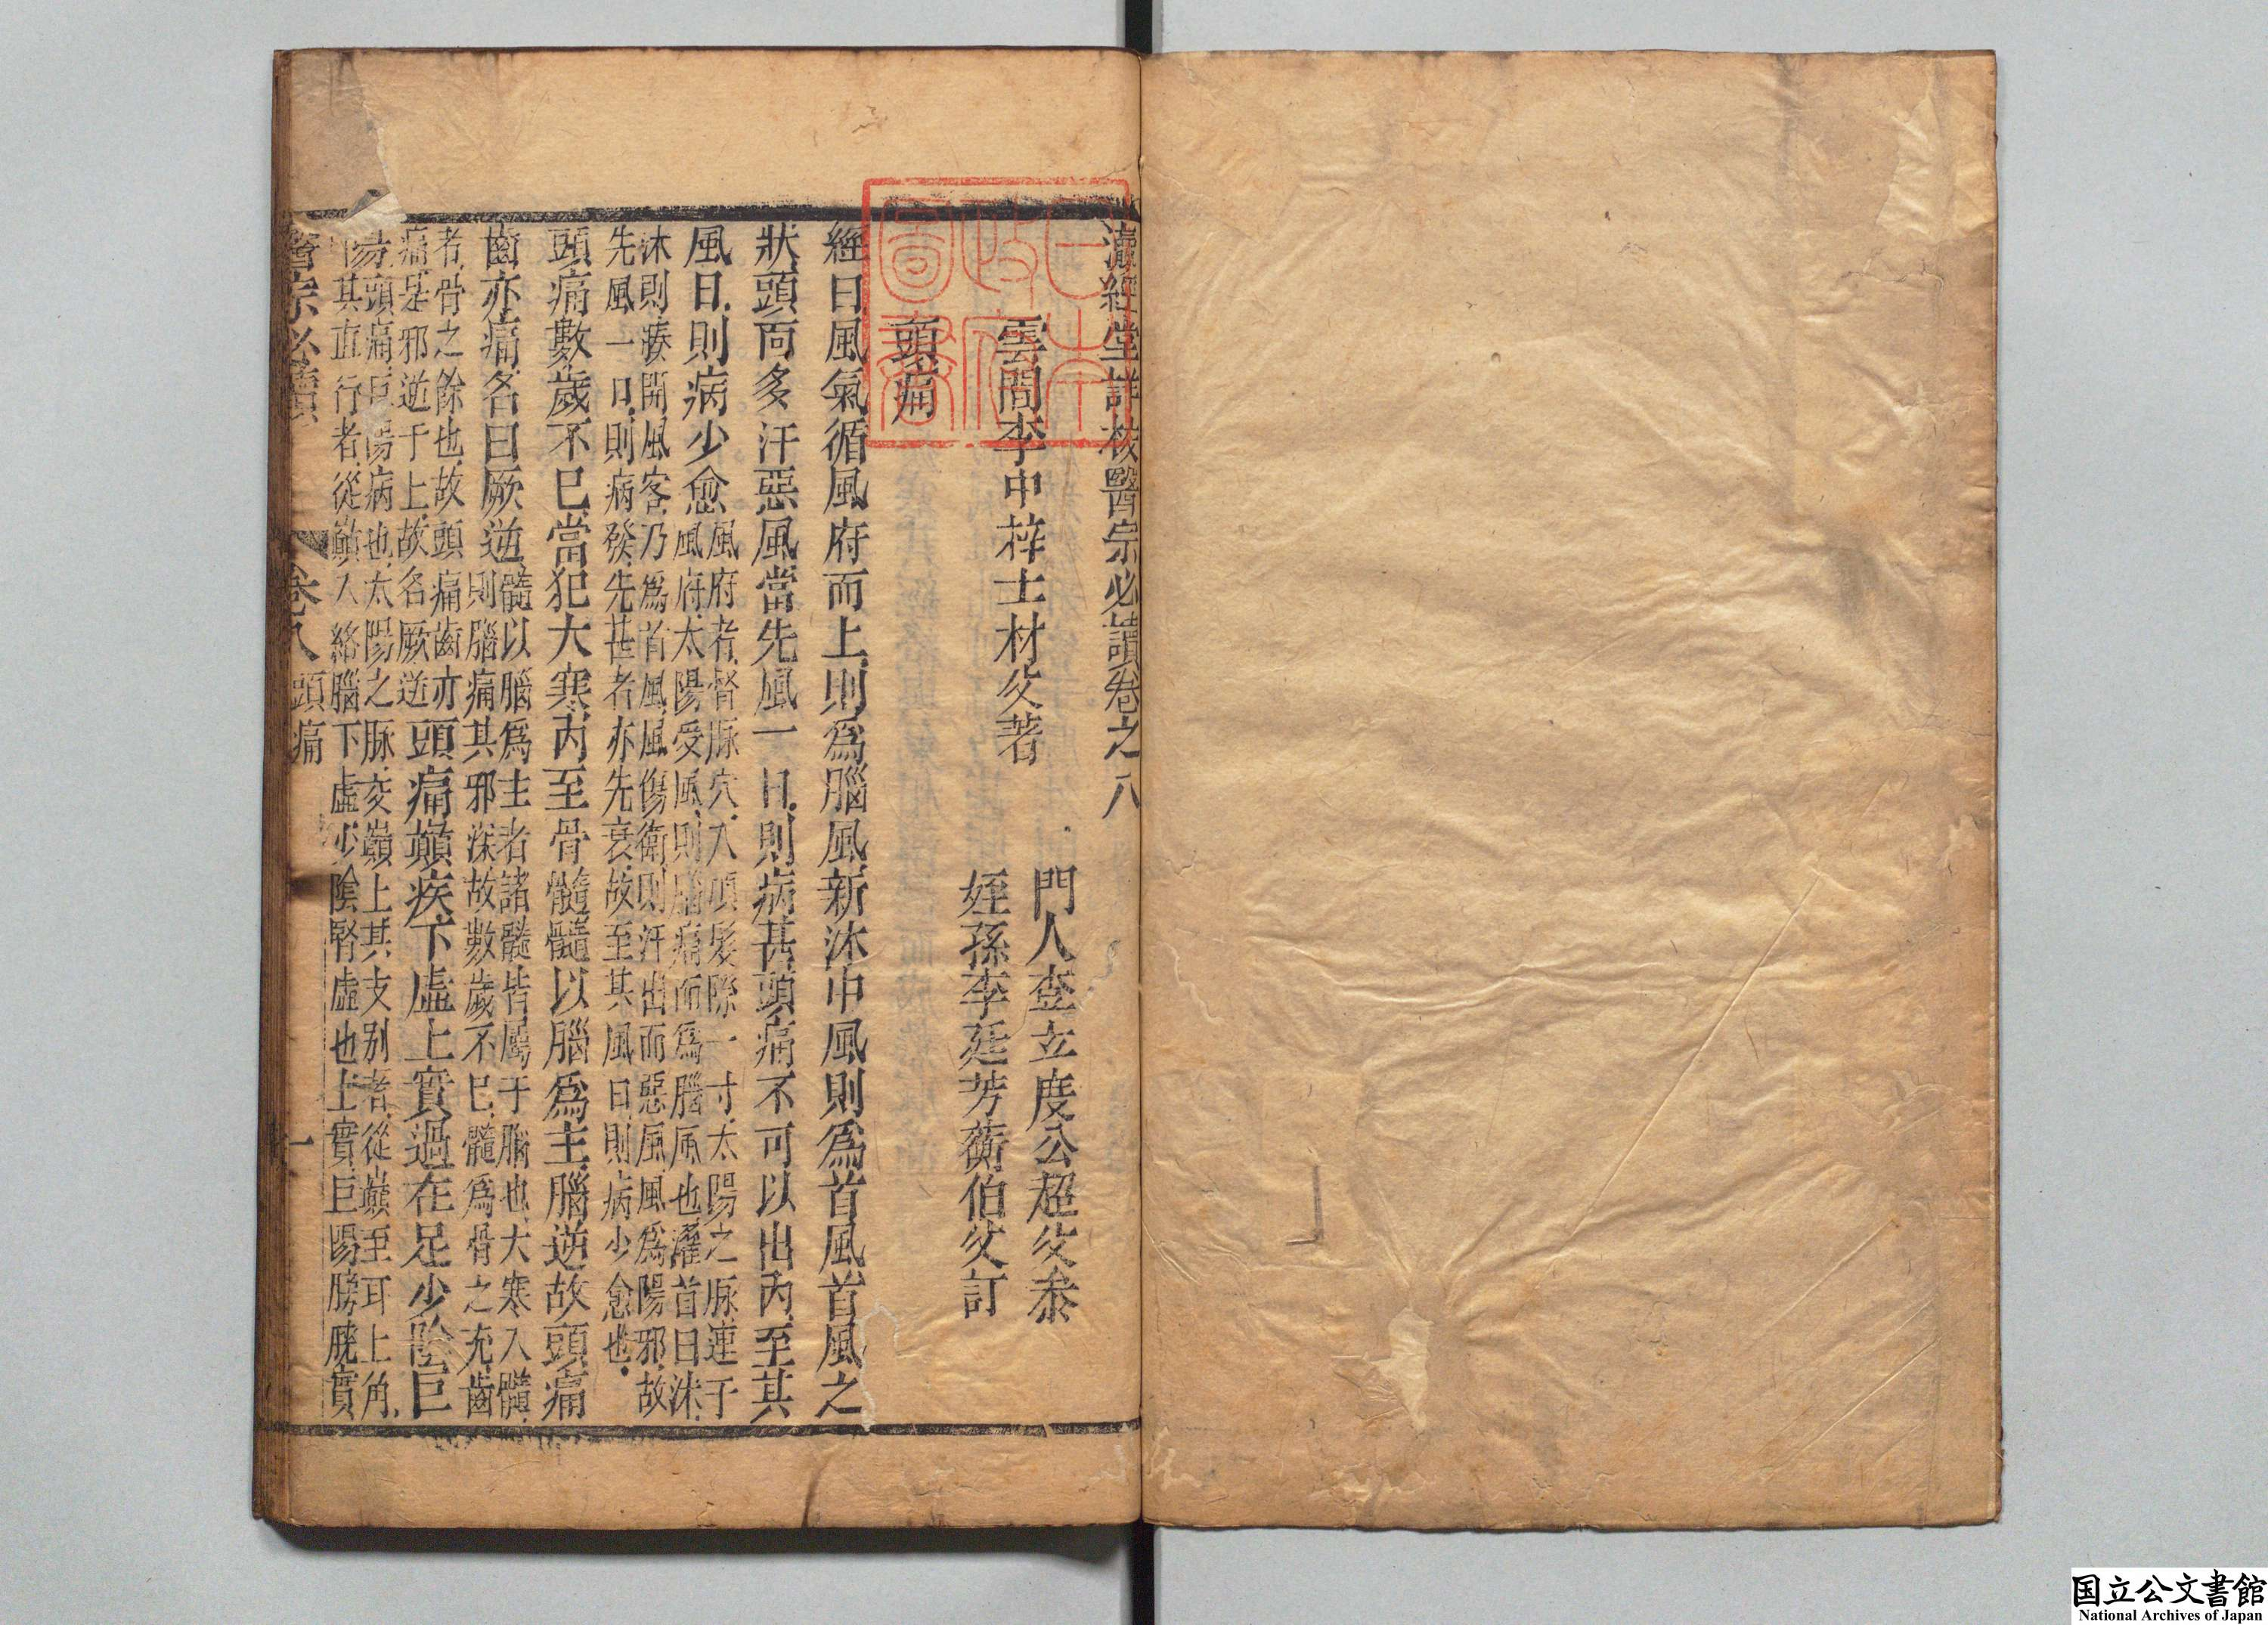 瀛經堂詳校醫宗必讀卷之八
雲間李中梓士材父著
門人查立度公超父叅
姪孫李廷芳蘅伯父訂
頭痛
經曰風氣循風府而上則爲腦風新沐中風則爲首風首風之
狀頭面多汗惡風當先風一日則病甚頭痛不可以出內至其
風日則病少愈
風府者督脉穴入項髮際一寸太陽之脉連于
風府太陽受風則腦痛而爲腦風也濯首曰沐
沐則腠開風客乃爲首風風傷衛則汗出而惡風風爲陽邪故
先風一日則病發先甚者亦先衰故至其風日則病少愈也
頭痛數歲不已當犯大寒內至骨髓髓以腦爲主腦逆故頭痛
齒亦痛名曰厥逆
髓以腦爲主者諸髓皆屬于腦也大寒入髓
則腦痛其邪深故數歲不已髓爲骨之充齒
者骨之餘也故頭痛齒亦
痛是邪逆于上故名厥逆
頭痛巓疾下虛上實過在足少陰巨
陽頭痛巨陽病也太陽之脉交巓上其支别者從巓至耳上角
其直行者從巓入絡腦下虛少陰腎虛也上實巨陽膀胱實
醫宗必讀
卷八
頭痛
一
国立公文書館
National Archives of Japan